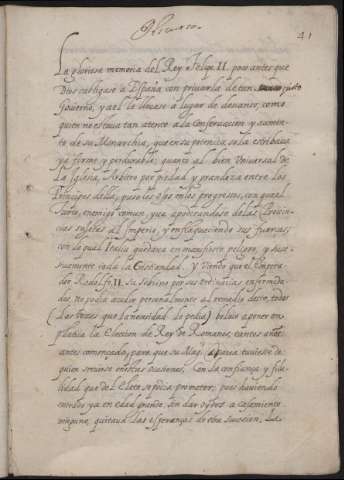 41
La gloriosa memoria del Rey Felipe II. poco antes que
Dios castigase a España con privarla de tan justo
Govierno, y a el le llevase a lugar de descanso, como
quien no estava tan atento a la conservacion y aumen-
to de su Monarchia, que en su potencia sola estribava
ya firme y perdurable; quanto al bien Universal de
la Iglesia, arbitro por piedad y grandeza entre los
Principes della, puso los ojos en los progresos, con que el
Turco, enemigo comun, yva apoderandose de las Provin-
cias sujetas al Imperio, y enflaqueciendo sus fuerças;
con lo qual Italia quedava en manifiesto peligro, y
toda la Cristiandad. Y viendo que el Empera-
dor Rodolfo II. su sobrino por sus ordinarias enfermeda-
des, no podia acudir personalmente al remedio desto, todas
(las vezes que la necesidad lo pedia) bolvio a poner en
platica la Eleccion de Rey de Romanos, tantos años
antes començada, para que su Magd. tuviese de
quien servirse en estas ocasiones. Con la confiança y
que del Electo se podia prometer; pues haviendo
entrado ya en edad grande, sin dar oydos a casamiento
ninguno, quitava las esperanças de otra sucesion. La